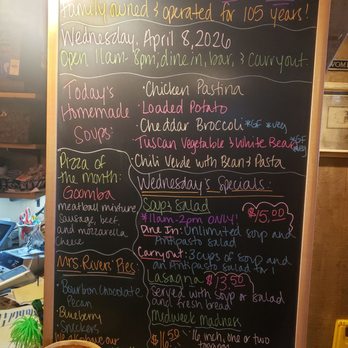 Family owned & operated for 105 years!
Wednesday, April 8, 2026
Open 11am-8pm, dine in, bar, & carryout.
Today's
Homemade
Soups:
• Chicken Pastina
• Loaded Potato
• Cheddar Broccoli *GF *veg
• Tuscan Vegetable & White Bean *GF
• Chili Verde with Bean & Pasta
Pizza of
the month:
Goomba
meatball mixture
sausage, beef
and mozzarella
cheese
Mrs Rivers' Pies:
• Bourbon Chocolate
Pecan
• Blueberry
• Snickers
Wednesday's Specials:
Soup & Salad
*11am-2pm ONLY!
$15.00
Dine In: Unlimited soup and
antipasto salad
Carryout: 3 cups of soup and
an Antipasto salad for 1
Lasagna $13.50
Served with soup or salad
and fresh bread
Midweek Madness
$11.50
16 inch, one or two